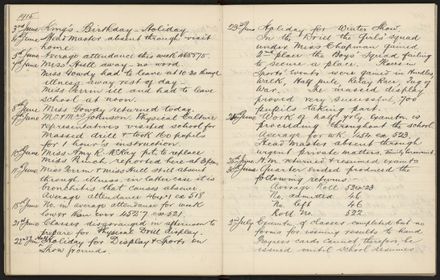 1915
3rd June King's Birthday - Holiday
4th June Head Master absent through visit home
5th June Average attendance this week 468.5/75
7th June Miss Hull away no word
Miss Gowdy had to leave at 10.30 through
illness: away rest of day.
Miss Perrin ill and had to leave
school at noon.
8th June Miss Gowdy returned today.
9th June Mr & Mrs Johnson Physical Culture
Representatives visited school for
Massed drill & took 400 pupils
for 1 hour's instruction.
Miss Perrin & Miss Hull still absent
through illness. In latter case it is
bronchitis that causes absence
Average attendance 518
No. in average attendance for week
lower than ever 521
Classes disorganised in afternoon to
prepare for Physical Drill display.
Holiday for Display & Sports on
Show grounds
23rd June Holiday for Winter Show.
In the Drill the Girls squad
under Miss Chapman gained
2nd place the Boys' Squad failing
to secure a place. Places in
Sports Events were gained in Hurdles
Walk, Half mile, Relay Race, Tug of
War. The massed display
proved very successful, 700
pupils taking part.
Work of half yrly Examtn is
proceeding throughout the school
Average for wk 454 ex 523.
Head Master absent through
urgent private matters
H.M. returned & resumed examtn
Quarter ended produced the
following returns.
Average Roll 520.23
No. admitted 46
No. left 46
Roll No. 522
2nd July Examtn of classes completed but no
forms for sending results to hand
Progress cards cannot therefore be
issued until school resumes